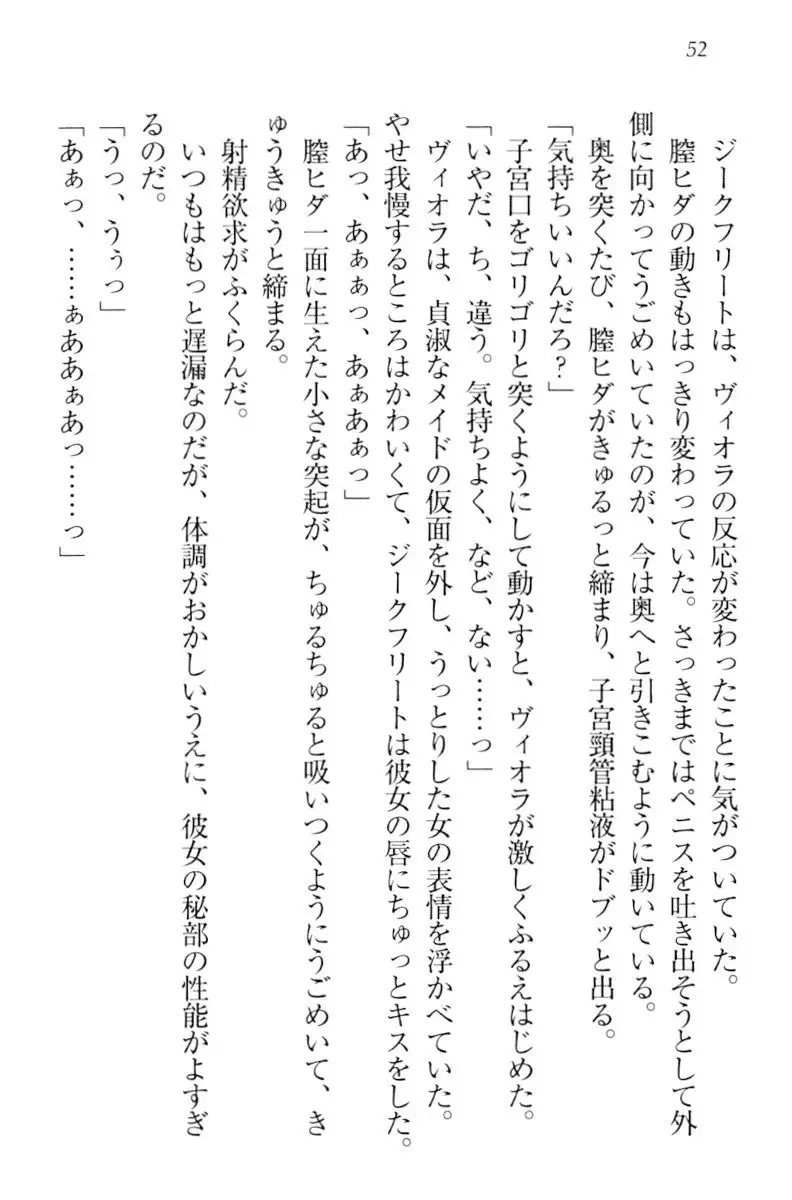 52
ジークフリートは、ヴィオラの反応が変わったことに気がついていた。
膣ヒダの動きもはっきり変わっていた。さっきまではペニスを吐き出そうとして外
側に向かってうごめいていたのが、今は奥へと引きこむように動いている。
奥を突くたび、膣ヒダがきゅるっと締まり、子宮頸管粘液がドブッと出る。
「気持ちいいんだろ？」
子宮口をゴリゴリと突くようにして動かすと、ヴィオラが激しくふるえはじめた。
「いやだ、ち、違う。気持ちよく、など、ない……っ」
ヴィオラは、貞淑なメイドの仮面を外し、うっとりした女の表情を浮かべていた。
やせ我慢するところはかわいくて、ジークフリートは彼女の唇にちゅっとキスをした。
「あっ、あぁぁっ、あぁあぁっ」
膣ヒダ一面に生えた小さな突起が、ちゅるちゅると吸いつくようにうごめいて、き
ゅうきゅうと締まる。
射精欲求がふくらんだ。
いつもはもっと遅漏なのだが、体調がおかしいうえに、彼女の秘部の性能がよすぎ
るのだ。
「うっ、うぅっ」
「あぁっ、……ぁああぁあっ……っ」